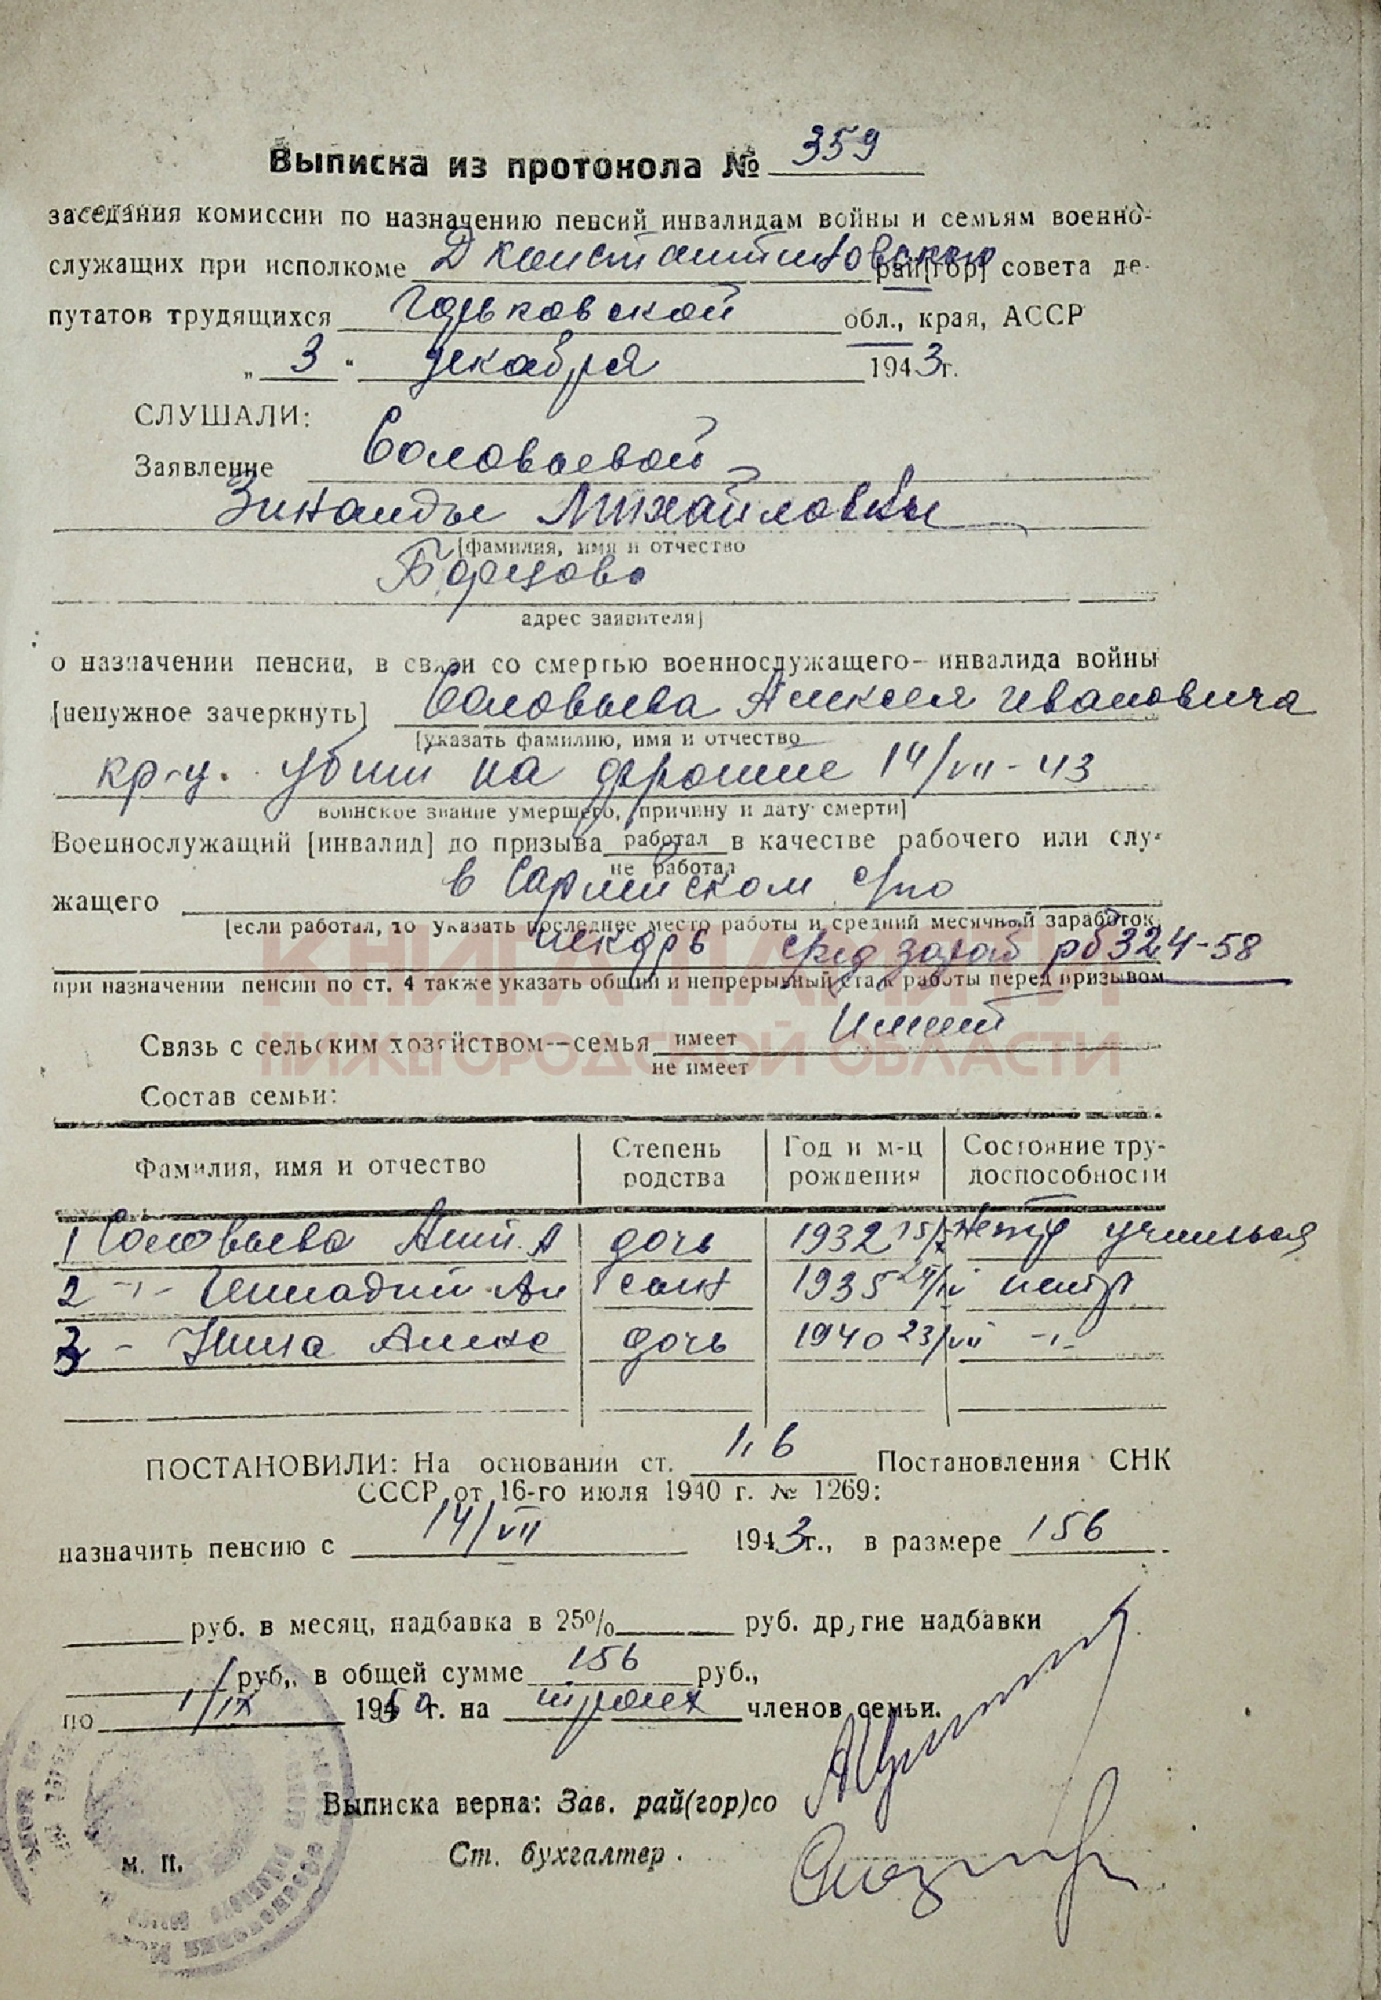 Выписка из протокола № 359
заседания комиссии по назначению пенсий инвалидам войны и семьям военно-
служащих при исполкоме Д Константиновского рай[гор] совета де-
путатов трудящихся Горьковской обл., края, АССР
„ 3 " декабря 1943 г.
СЛУШАЛИ:
Заявление Соловьевой
Зинаиды Михайловны
[фамилия, имя и отчество
Борцово
адрес заявителя]
о назначении пенсии, в связи со смертью военнослужащего- инвалида войны
[ненужное зачеркнуть] Соловьева Алексея Ивановича
[указать фамилию, имя и отчество
кр-ц. убит на фронте 14/VII-43
воинское звание умершего, причину и дату смерти]
Военнослужащий [инвалид] до призыва работал в качестве рабочего или слу-
не работал
жащего в Сарлейском спо
[если работал, то указать последнее место работы и средний месячный заработок,
пекарь сред зараб рб 324-58
при назначении пенсии по ст. 4 также указать общий и непрерывный стаж работы перед призывом
КНИГА ПАМЯТИ
НИЖЕГОРОДСКОЙ ОБЛАСТИ
Связь с сельским хозяйством—семья имеет имеет
не имеет
Состав семьи:
Фамилия, имя и отчество Степень родства Год и м-ц рождения Состояние тру-доспособности
1 Соловьева А дочь 1932 15/ нетр учиться
2 -"- Геннадий Ал сын 1935 нетр
3 - Нина Алекс дочь 1940 23/VII -"-
ПОСТАНОВИЛИ: На основании ст. 1, 6 Постановления СНК
СССР от 16-го июля 1940 г. № 1269:
назначить пенсию с 14/VII 1943 г., в размере 156
руб. в месяц, надбавка в 25% руб. другие надбавки
руб., в общей сумме 156 руб.,
по 1/IX 195 г. на троих членов семьи.
Выписка верна: Зав. рай(гор)со
Ст. бухгалтер
м. п.